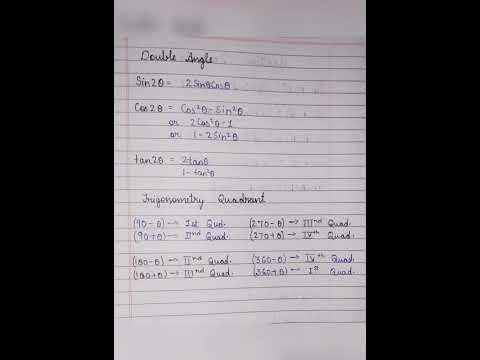 Double Angle
Sin2θ = 2SinθCosθ
Cos2θ = Cos²θ - Sin²θ
or 2Cos²θ - 1
or 1 - 2Sin²θ
tan2θ = 2tanθ
1 - tan²θ
Trigonometry Quadrant
(90-θ) → Ist Qud. (270-θ) → IIInd Quad.
(90+θ) → IInd Quad. (270+θ) → IVth Quad.
(180-θ) → IInd Quad. (360-θ) → IVth Quad.
(180+θ) → IIInd Quad. (360+θ) → Ist Quad.